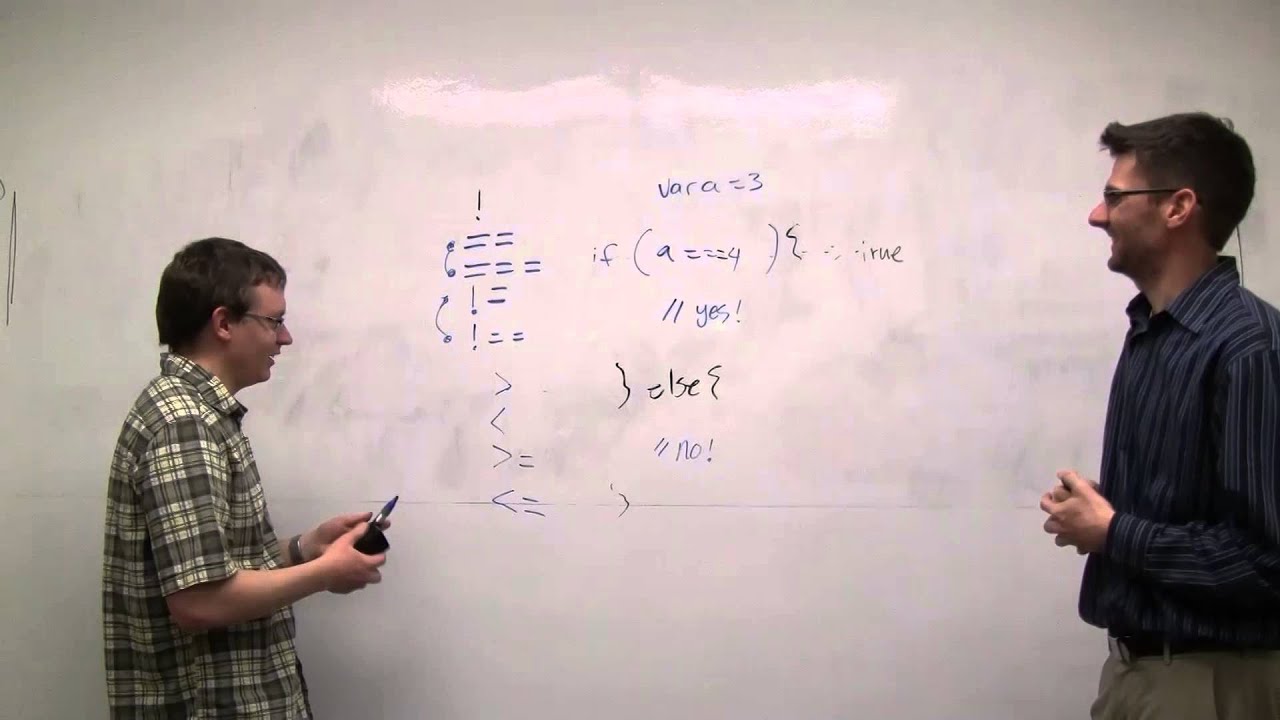 !
==
===
!=
!==
>
<
>=
<=
var a = 3
if (a === 4 ) { true
// yes!
} else {
// no!
}